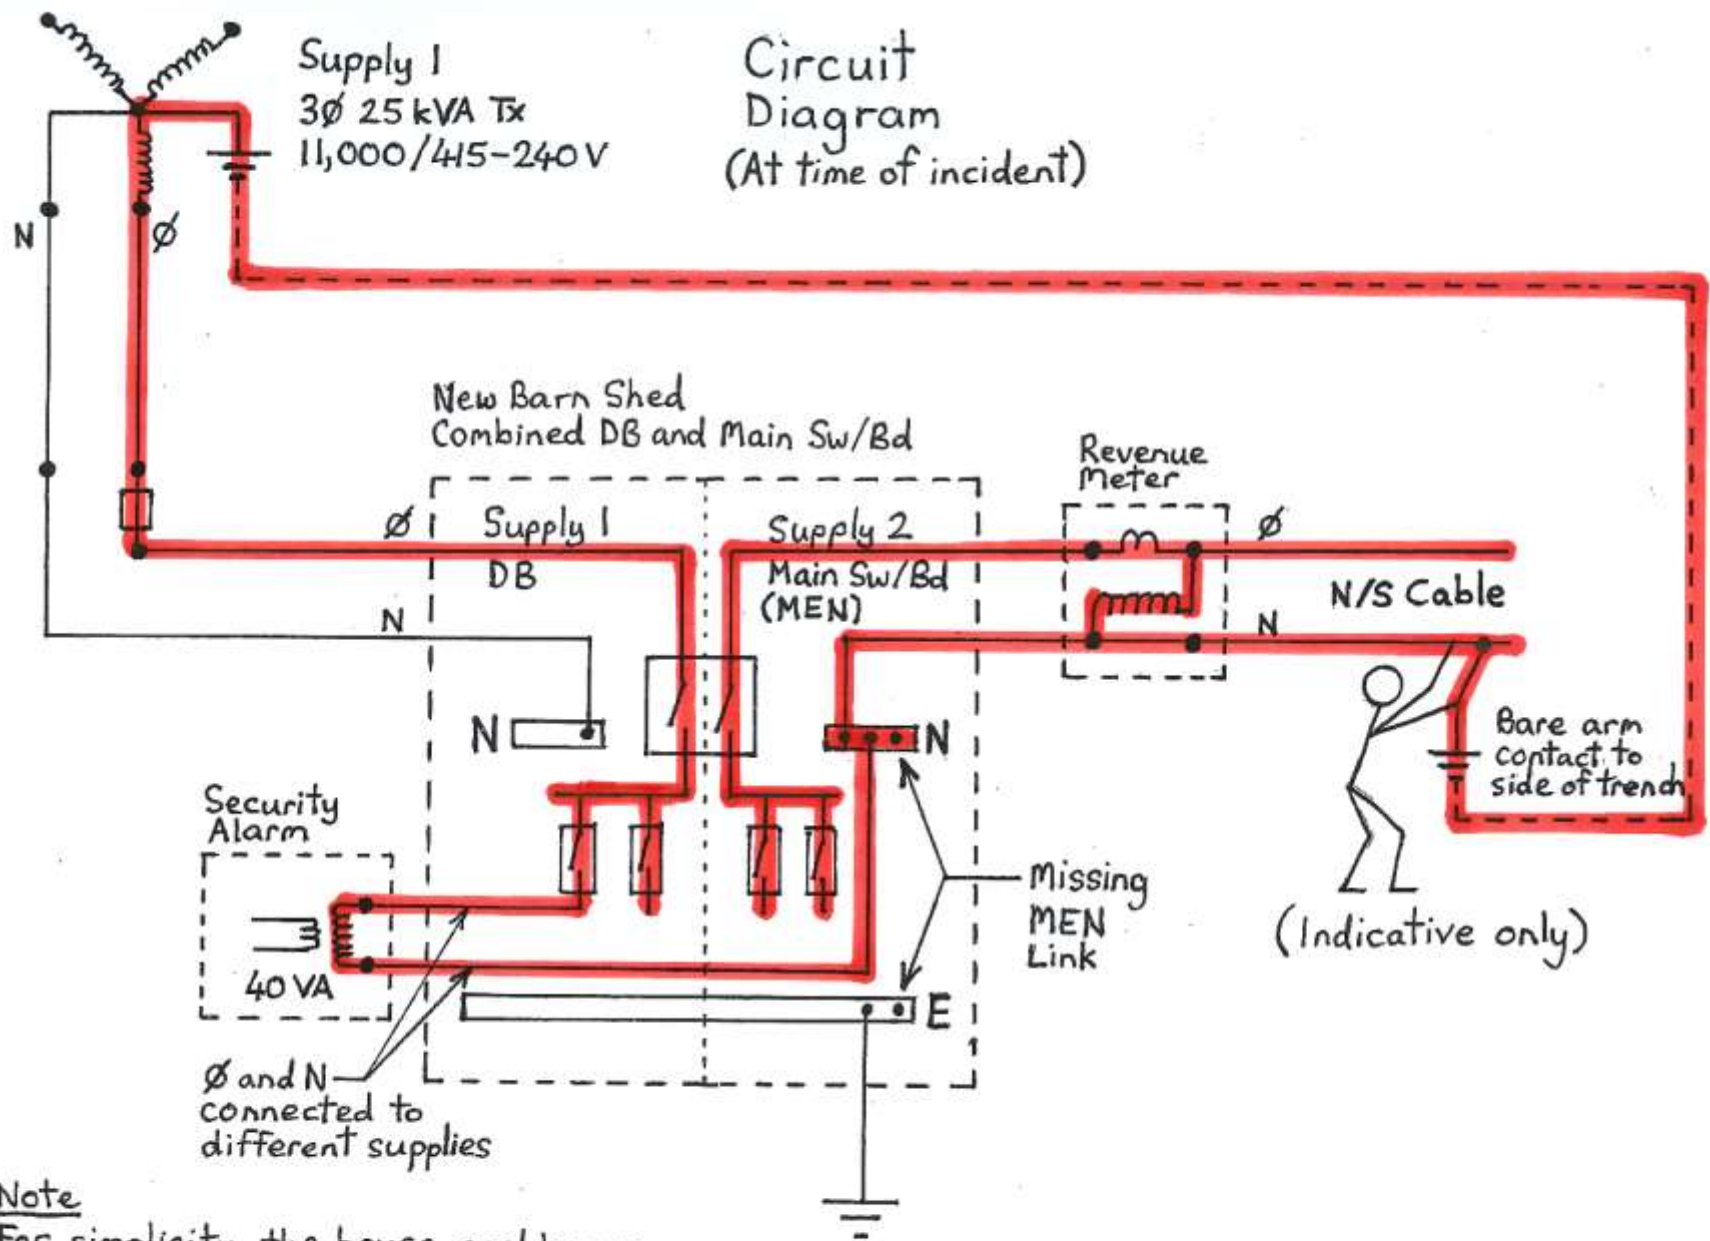 Supply 1
3Ø 25 kVA Tx
11,000/415-240V
Circuit
Diagram
(At time of incident)
N
Ø
New Barn Shed
Combined DB and Main Sw/Bd
Revenue
Meter
Ø
Supply 1
DB
Supply 2
Main Sw/Bd
(MEN)
Ø
N/S Cable
N
N
N
N
Bare arm
contact to
side of trench
Security
Alarm
40 VA
Missing
MEN
Link
(Indicative only)
E
Ø and N
connected to
different supplies
Note
For simplicity, the house